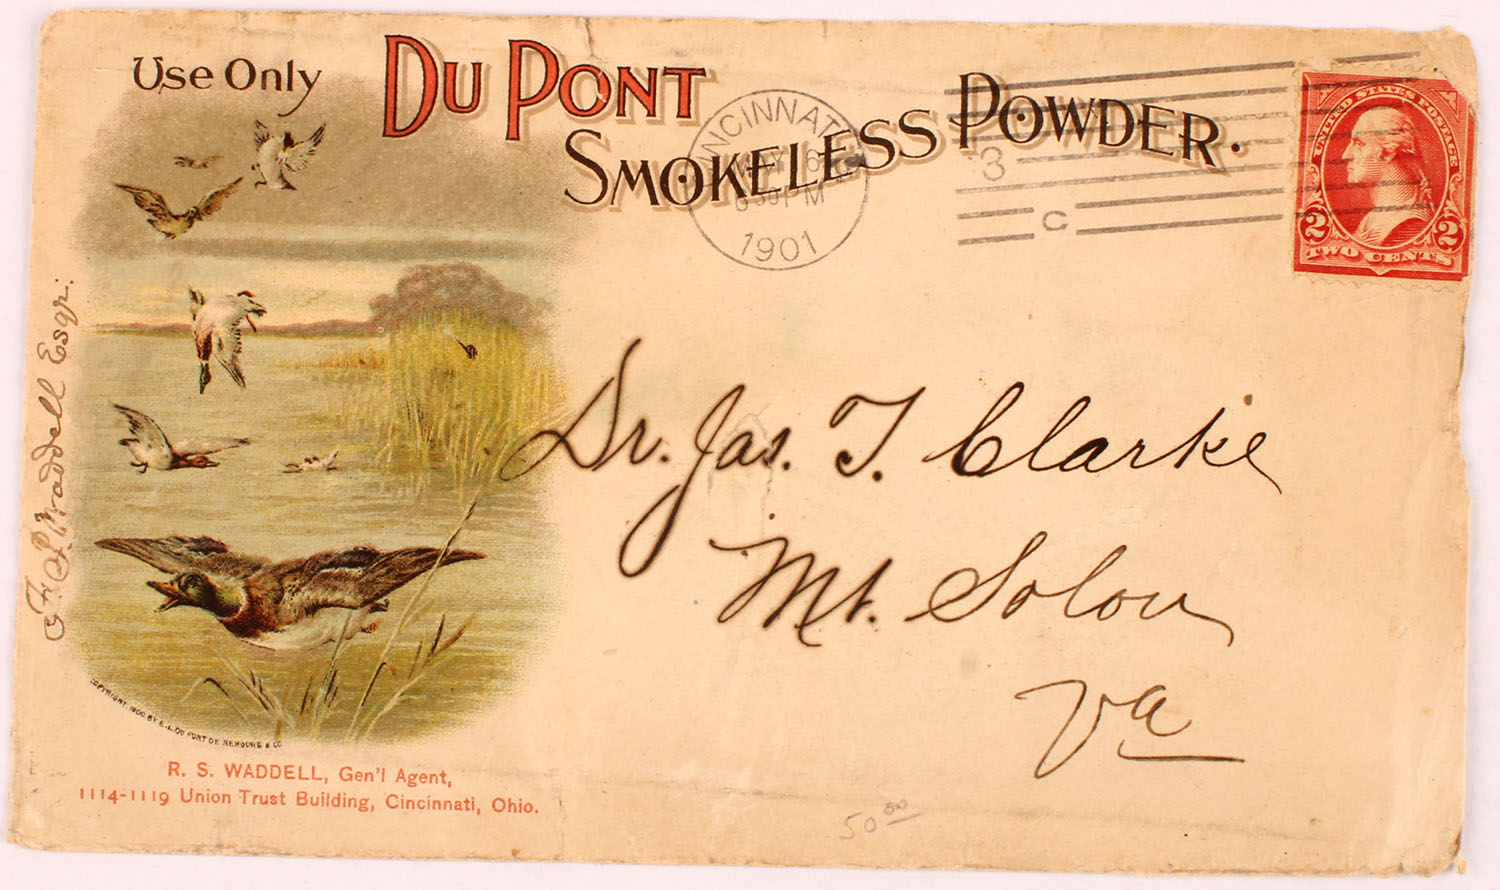 Use Only DU PONT
SMOKELESS POWDER.
CINCINNATI
MAY 16
8 30 PM
1901
3
C
UNITED STATES POSTAGE
2 2
TWO CENTS
Dr. Jas. T. Clarke
Mt. Solon
Va
Waddell Esqr.
COPYRIGHT, 1900 BY E. I. DU PONT DE NEMOURS & CO.
R. S. WADDELL, Gen'l Agent,
1114-1119 Union Trust Building, Cincinnati, Ohio.
50 00